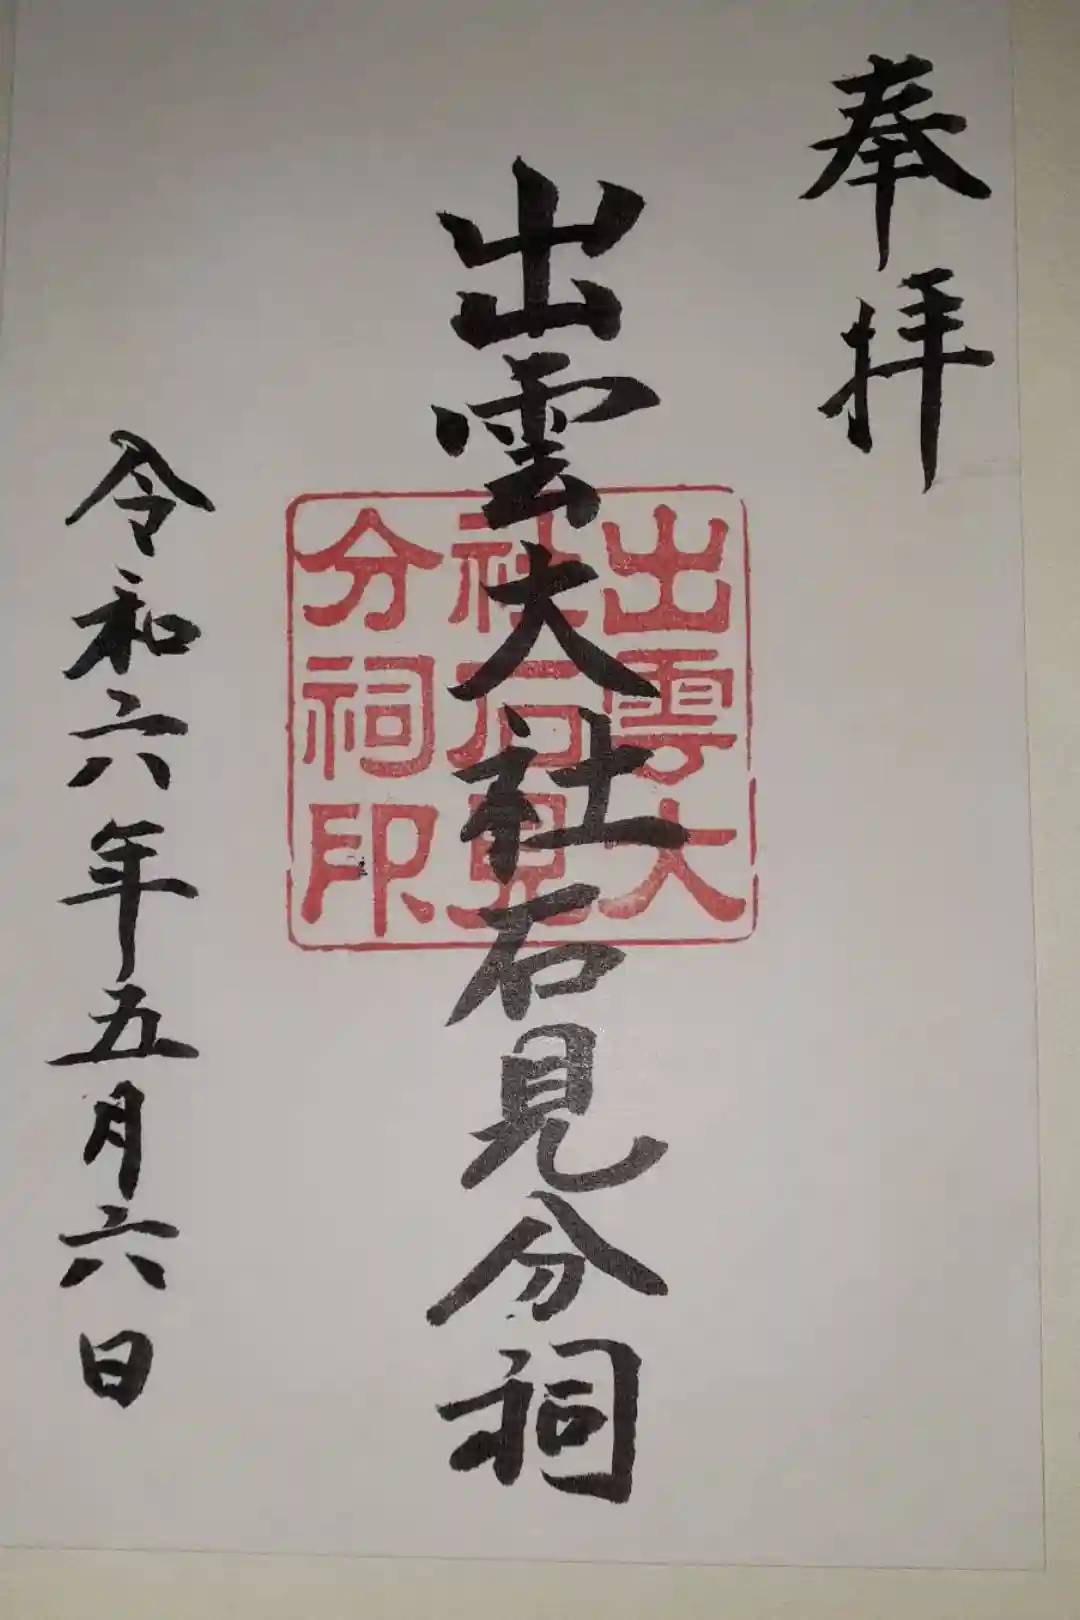 奉拝
出雲大社石見分祠
出雲大
社石見
分祠印
令和六年五月六日